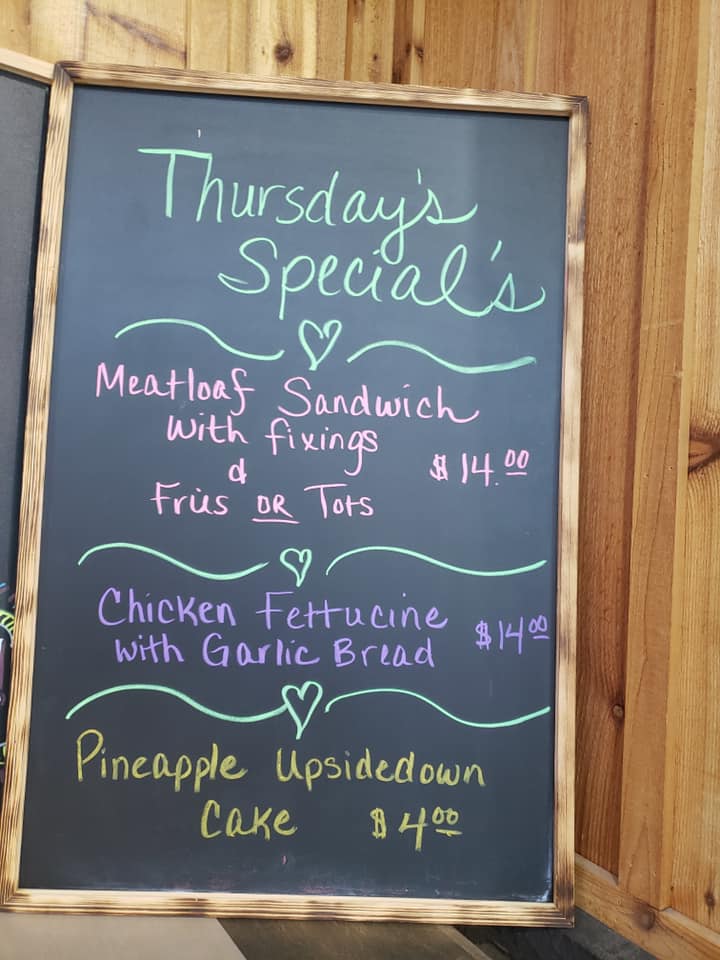 Thursday's
Special's
Meatloaf Sandwich
with fixings
&
Fries OR Tots
$14.00
Chicken Fettucine
with Garlic Bread
$14 00
Pineapple Upsidedown
Cake $4 00